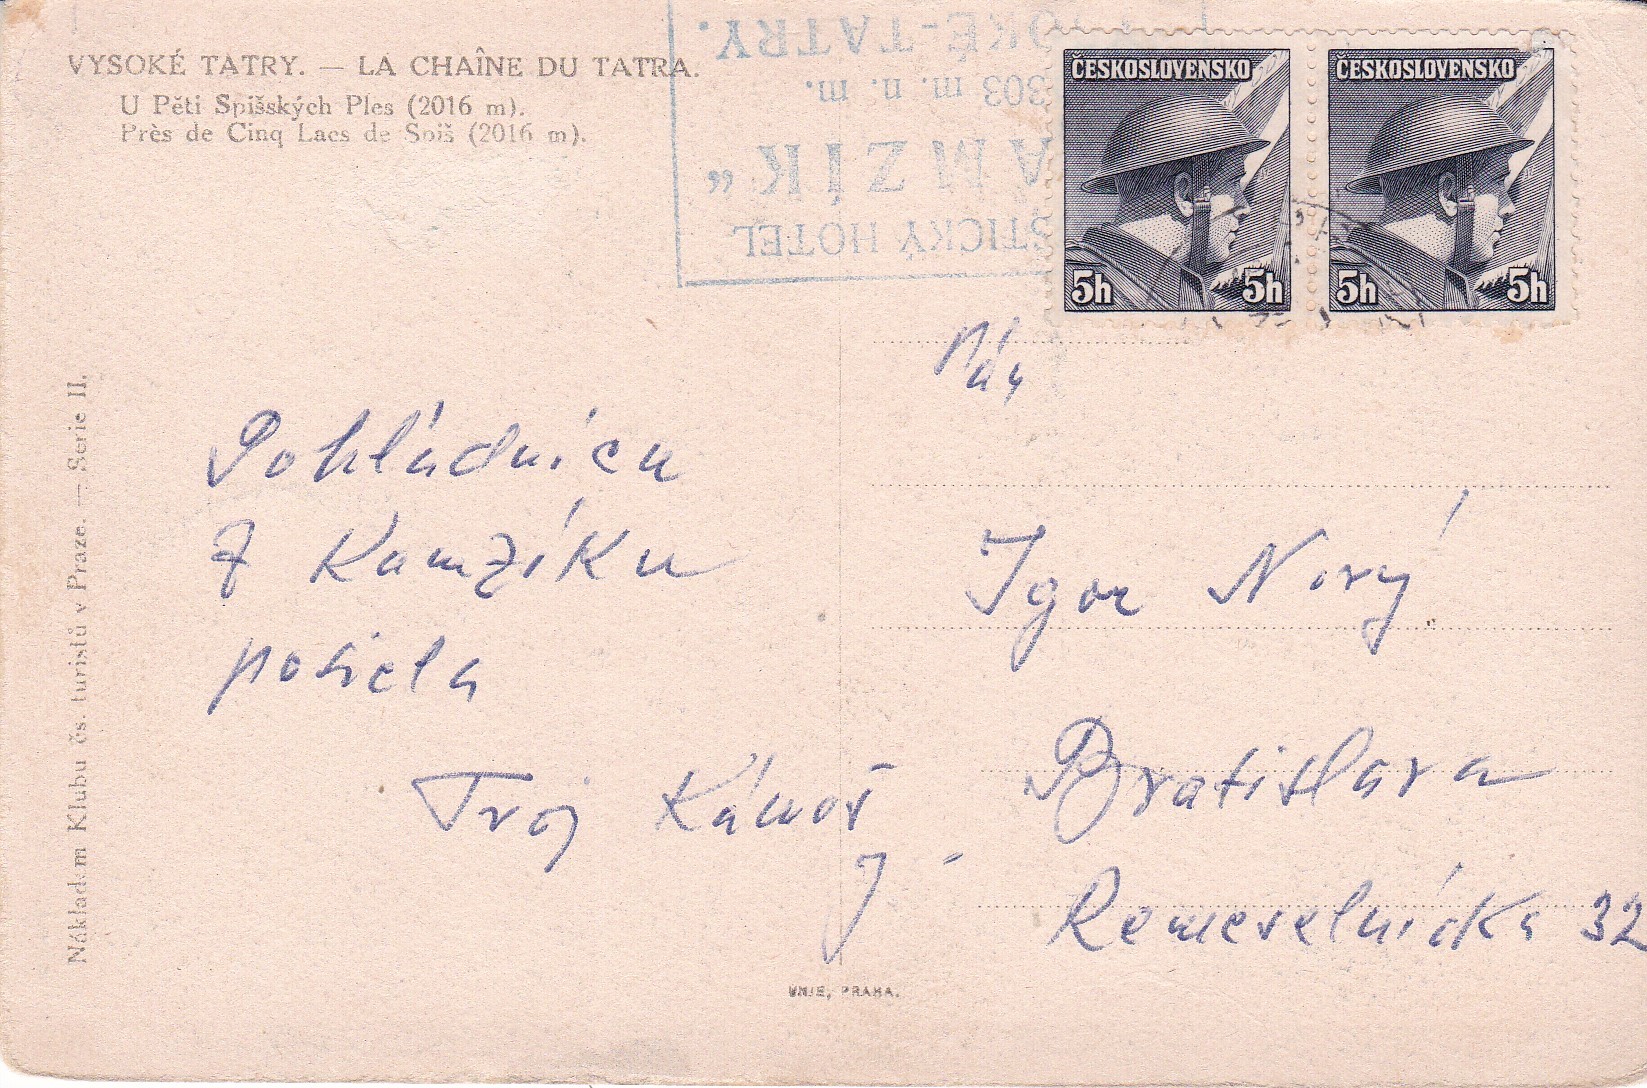 VYSOKÉ TATRY. — LA CHAÎNE DU TATRA.
U Pěti Spišských Ples (2016 m).
Près de Cinq Lacs de Spiš (2016 m).
STICKÝ HOTEL
AMZÍK“
303 m. n. m.
OKÉ-TATRY.
ČESKOSLOVENSKO
5h 5h
ČESKOSLOVENSKO
5h 5h
Pohládnicu
z Kamzíku
posiela
Tvoj
Igor Nový
Bratislava
Remeselnícka 32
Nákladem Klubu čs. turistů v Praze. — Serie II.
UNIE, PRAHA.